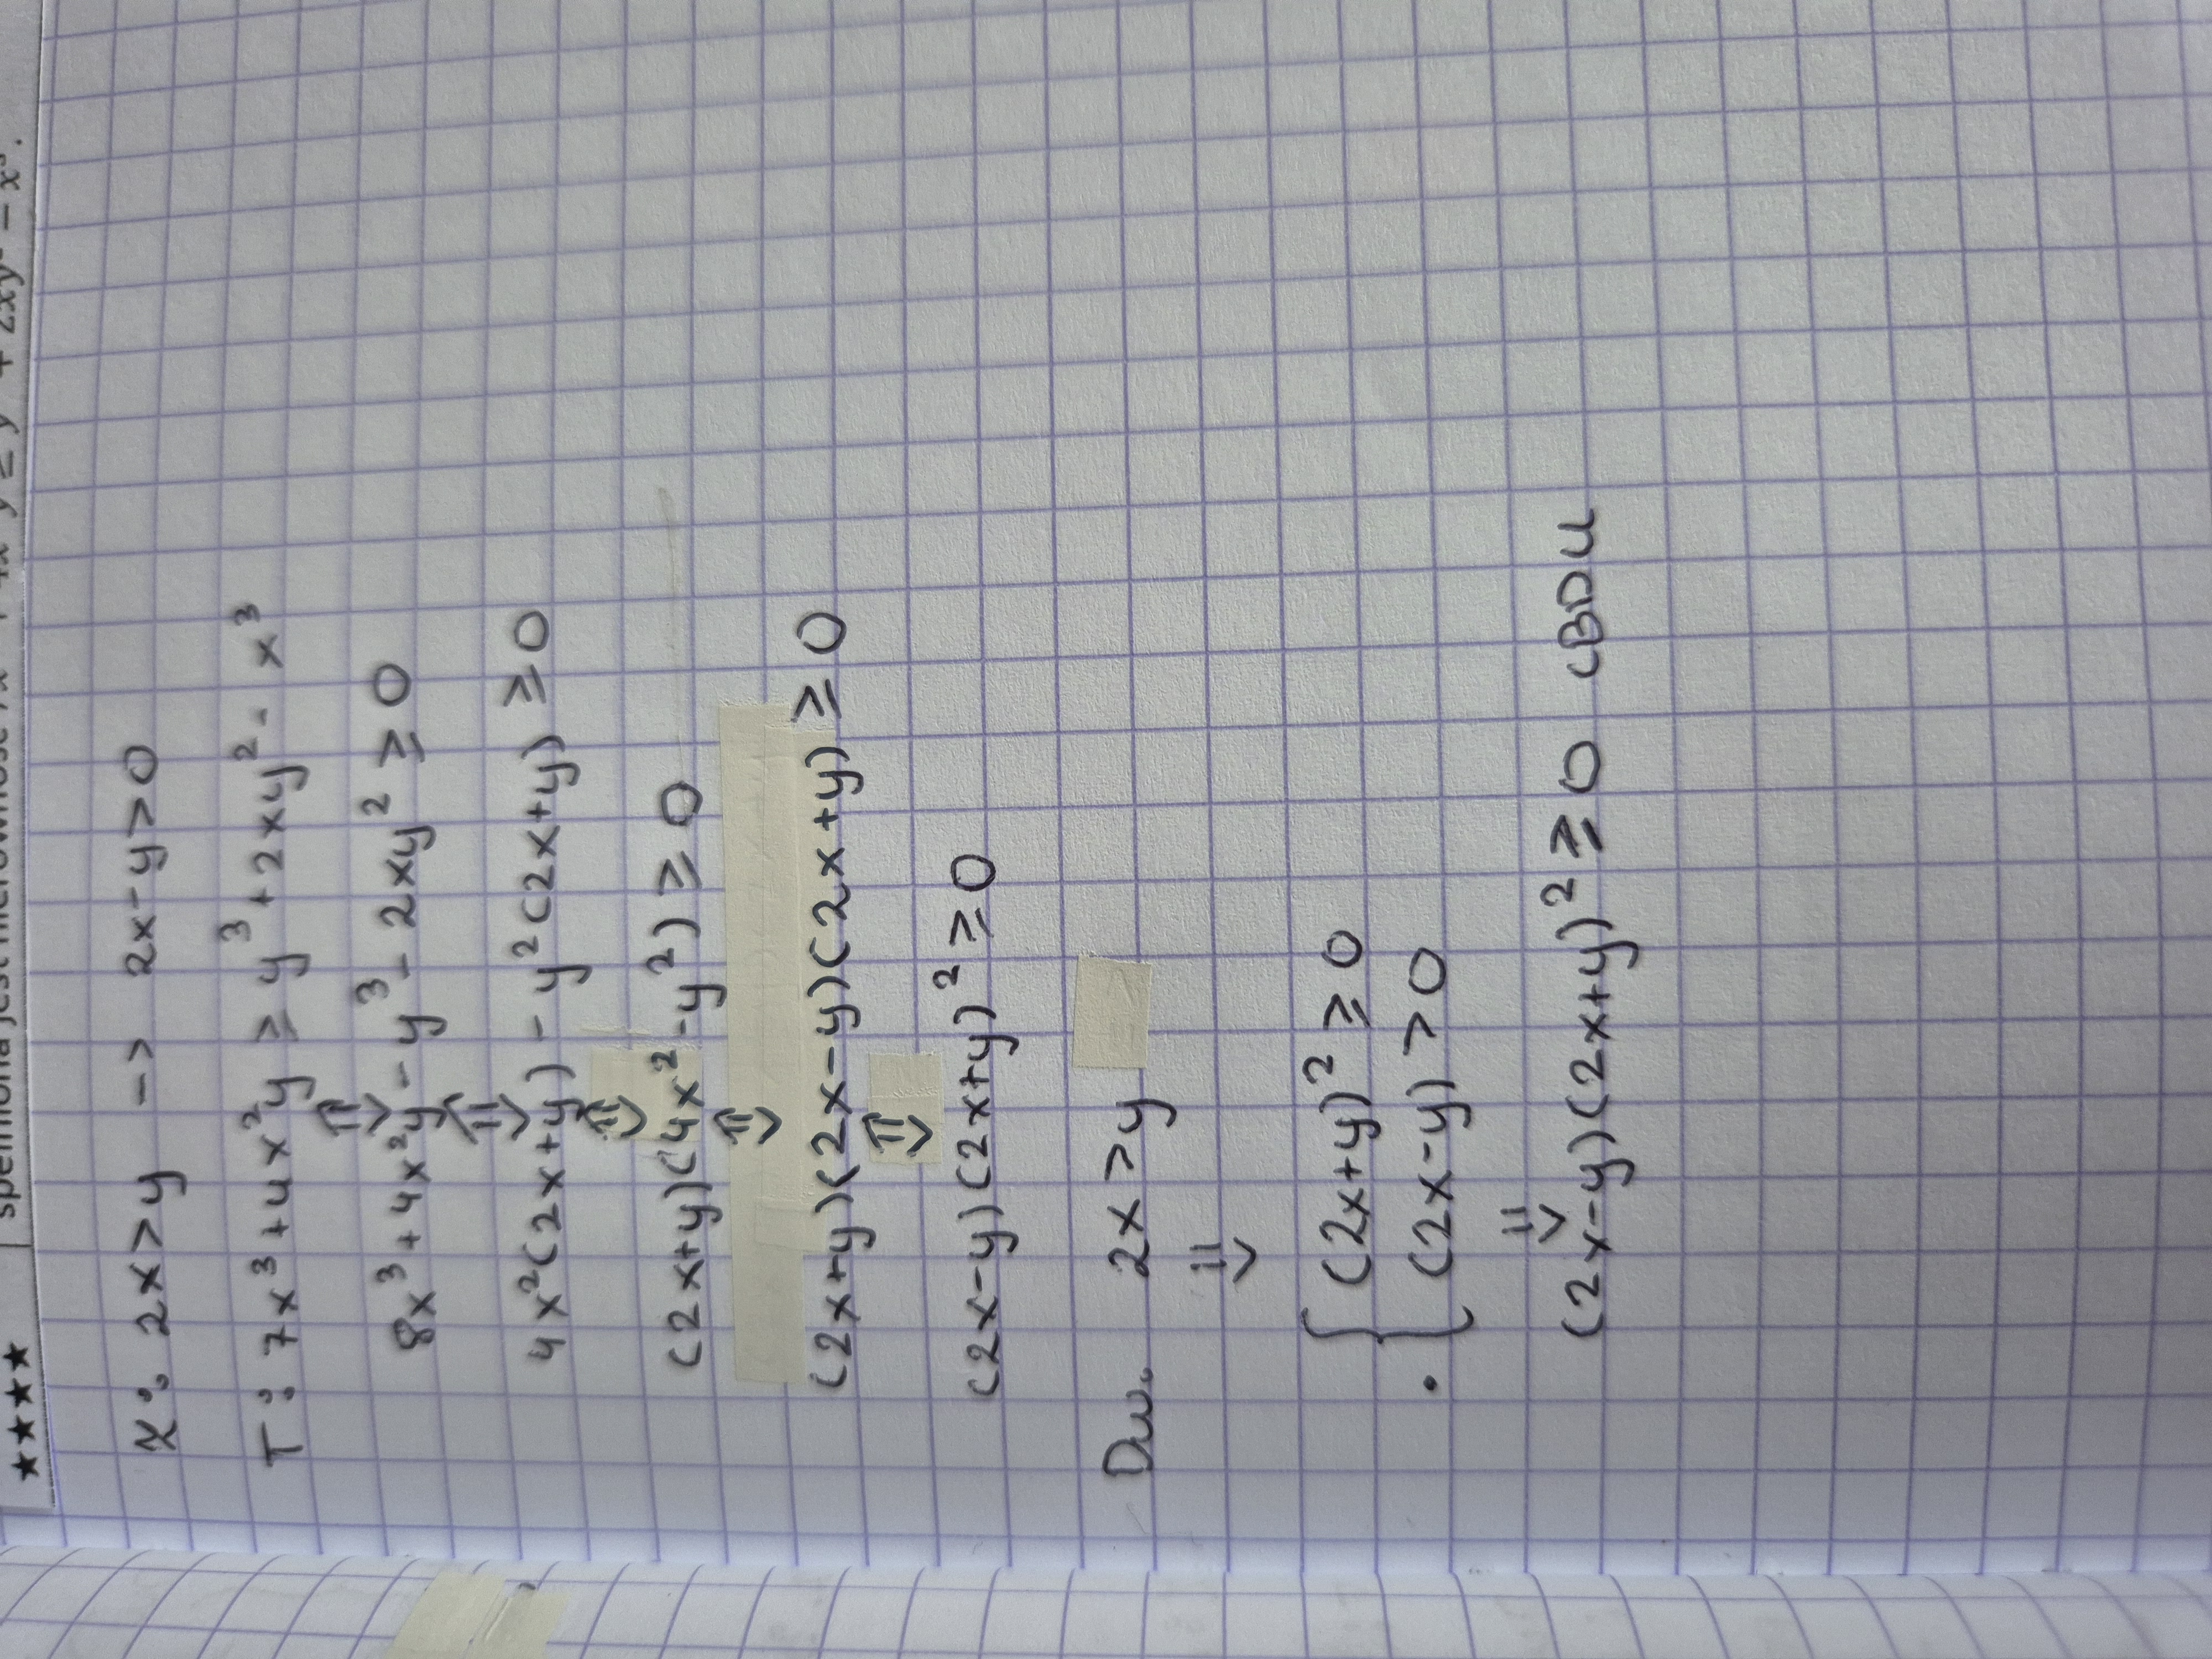 ★★★★ spełniona jest nierówność 7x³ + 4x²y ≥ y³ + 2xy² − x³.
Z: 2x>y -> 2x-y>0
T: 7x³+4x²y ≥ y³+2xy²-x³
⇕
8x³+4x²y-y³-2xy² ≥ 0
⇕
4x²(2x+y)-y²(2x+y) ≥ 0
⇕
(2x+y)(4x²-y²) ≥ 0
⇕
(2x+y)(2x-y)(2x+y) ≥ 0
⇕
(2x-y)(2x+y)² ≥ 0
Dw. 2x>y
⇓
{ (2x+y)² ≥ 0
· { (2x-y) > 0
⇓
(2x-y)(2x+y)² ≥ 0 CBDU